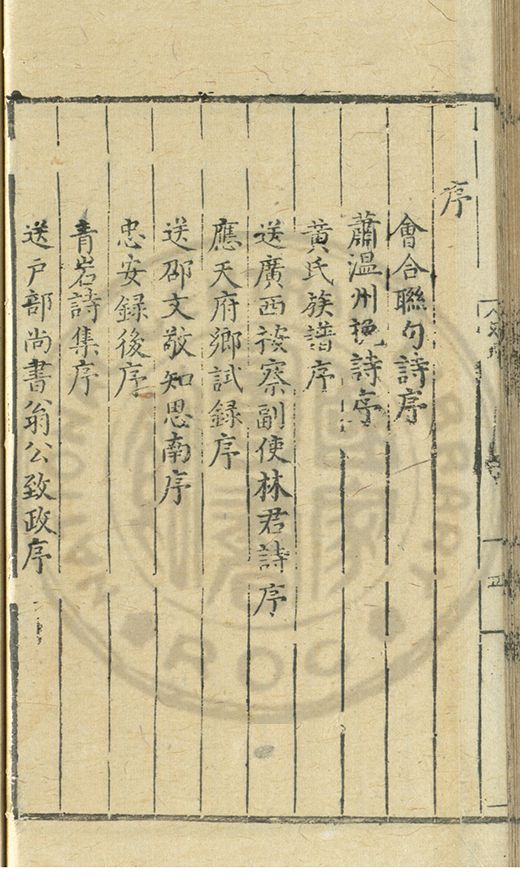 序
會合聯句詩序
蕭温州挽詩序
黄氏族譜序
送廣西按察副使林君詩序
應天府鄉試録序
送邵文敬知思南序
忠安録後序
青岩詩集序
送户部尚書翁公致政序
ROC